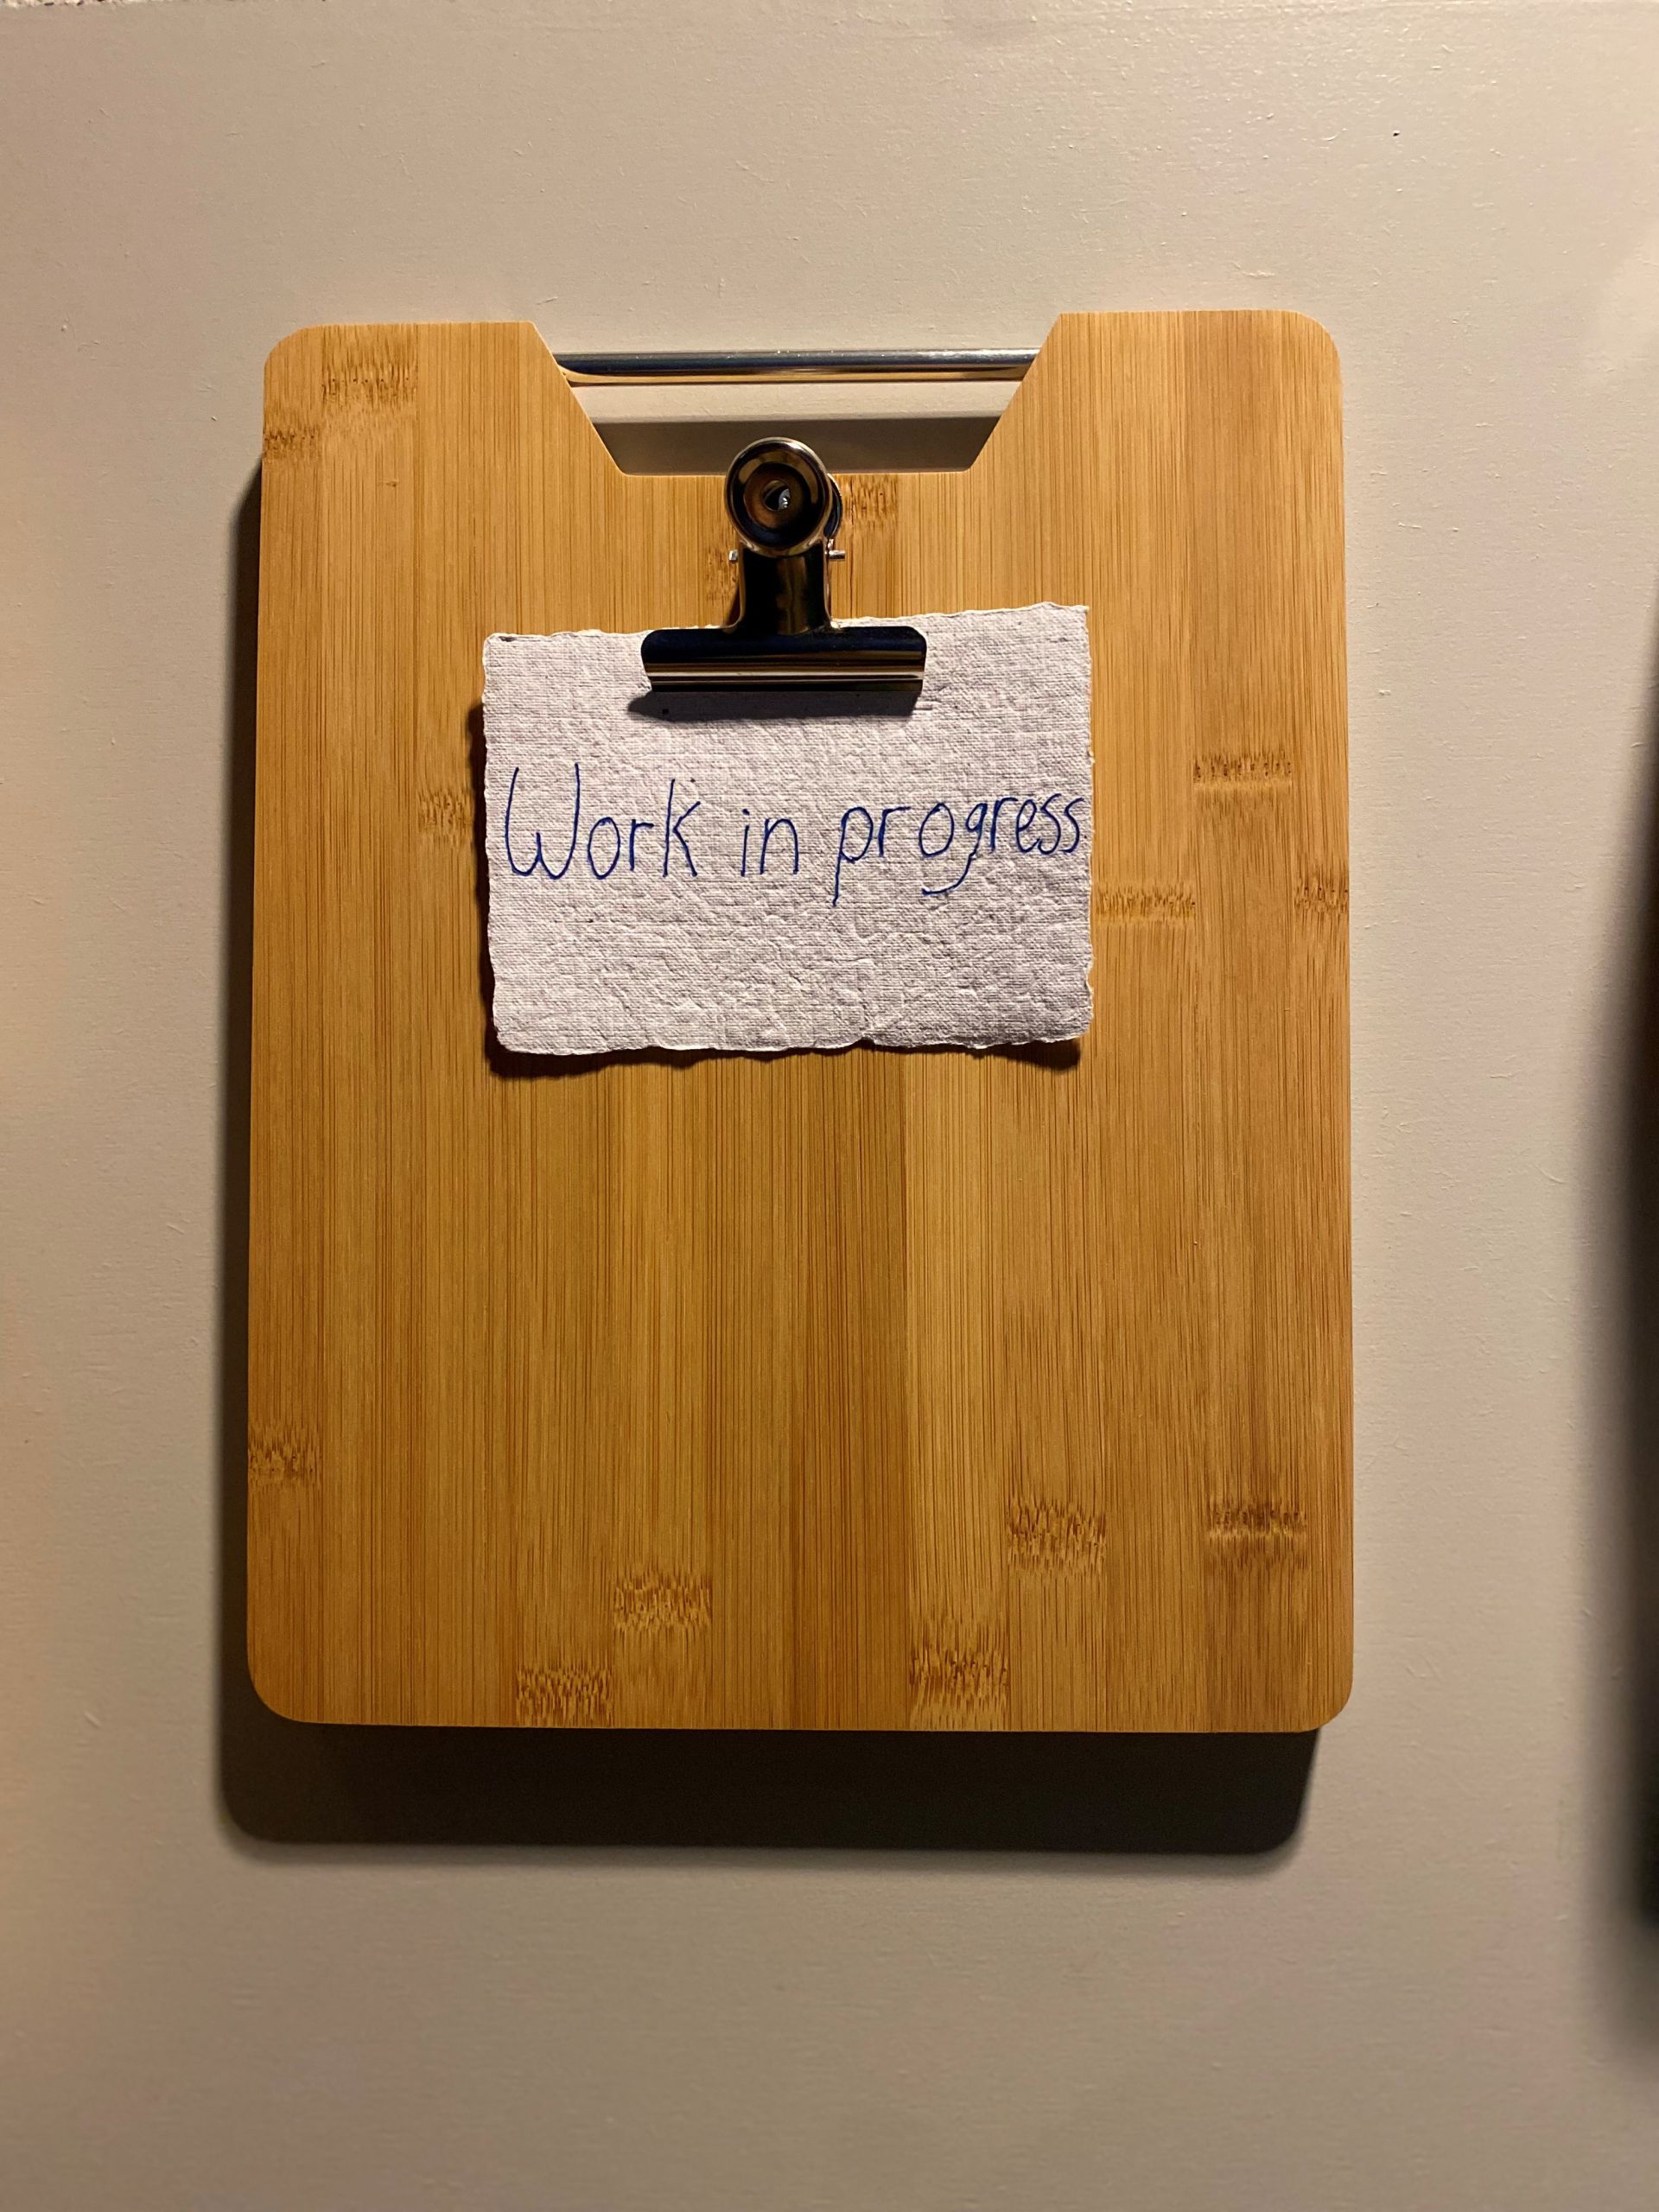 Work in progress